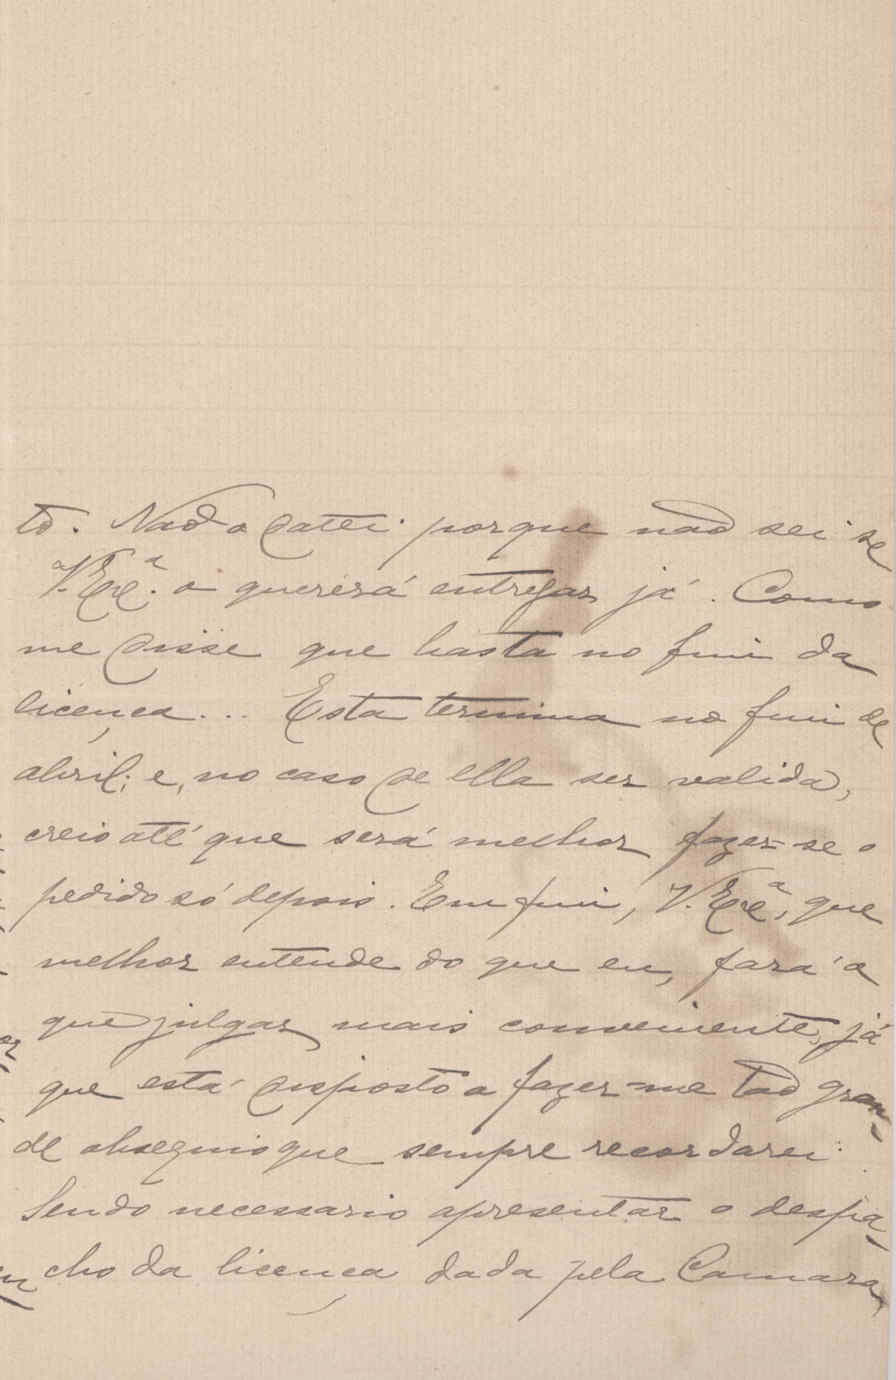 to. Não o datei porque não sei se
V. Ex.ª o quererá entregar já. Como
me disse que basta no fim da
licença... Esta termina no fim de
abril; e, no caso de ella ser valida,
creio até que será melhor fazer-se o
pedido só depois. Em fim, V. Ex.ª, que
melhor entende do que eu, fará o
que julgar mais conveniente, já
que está disposto a fazer-me tão gran-
de obsequio que sempre recordarei.
Sendo necessario apresentar o despa-
cho da licença dada pela Camara,